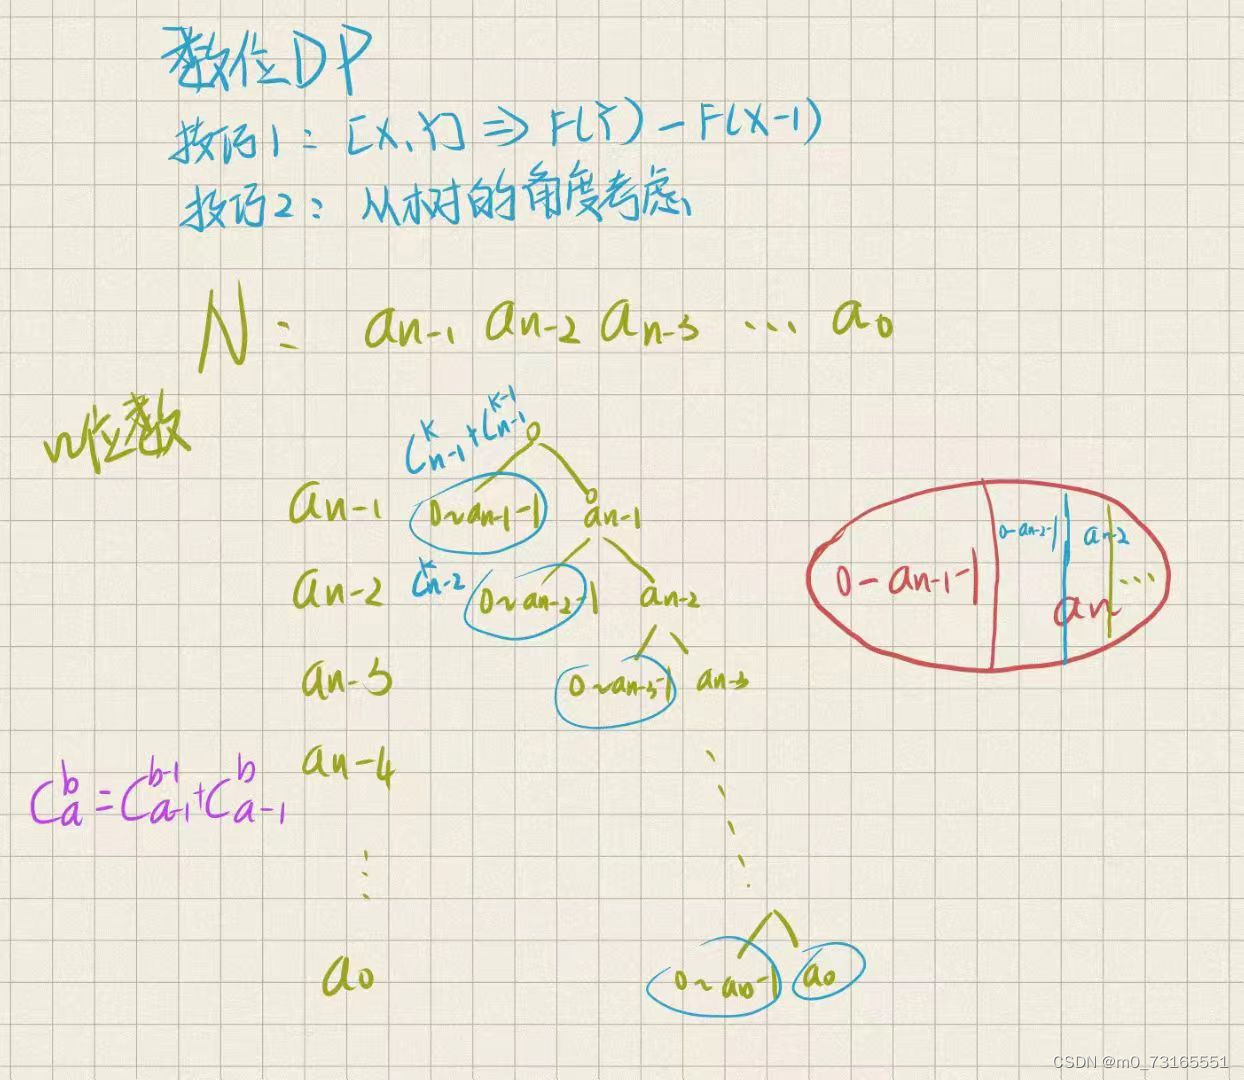 数位DP
技巧1：[X,Y] ⇒ F(Y) - F(X-1)
技巧2：从树的角度考虑、
N = an-1 an-2 an-3 ... a0
n位数
C_{n-1}^{k} + C_{n-1}^{k-1}
0
an-1 0~an-1-1 an-1
an-2 C_{n-2}^{k} 0~an-2-1 an-2
an-3 0~an-3-1 an-3
an-4
⋮
a0 0~a0-1 a0
C_{a}^{b} = C_{a-1}^{b-1} + C_{a-1}^{b}
0-an-1-1 0-an-2-1 an-2 ...
an
CSDN @m0_73165551